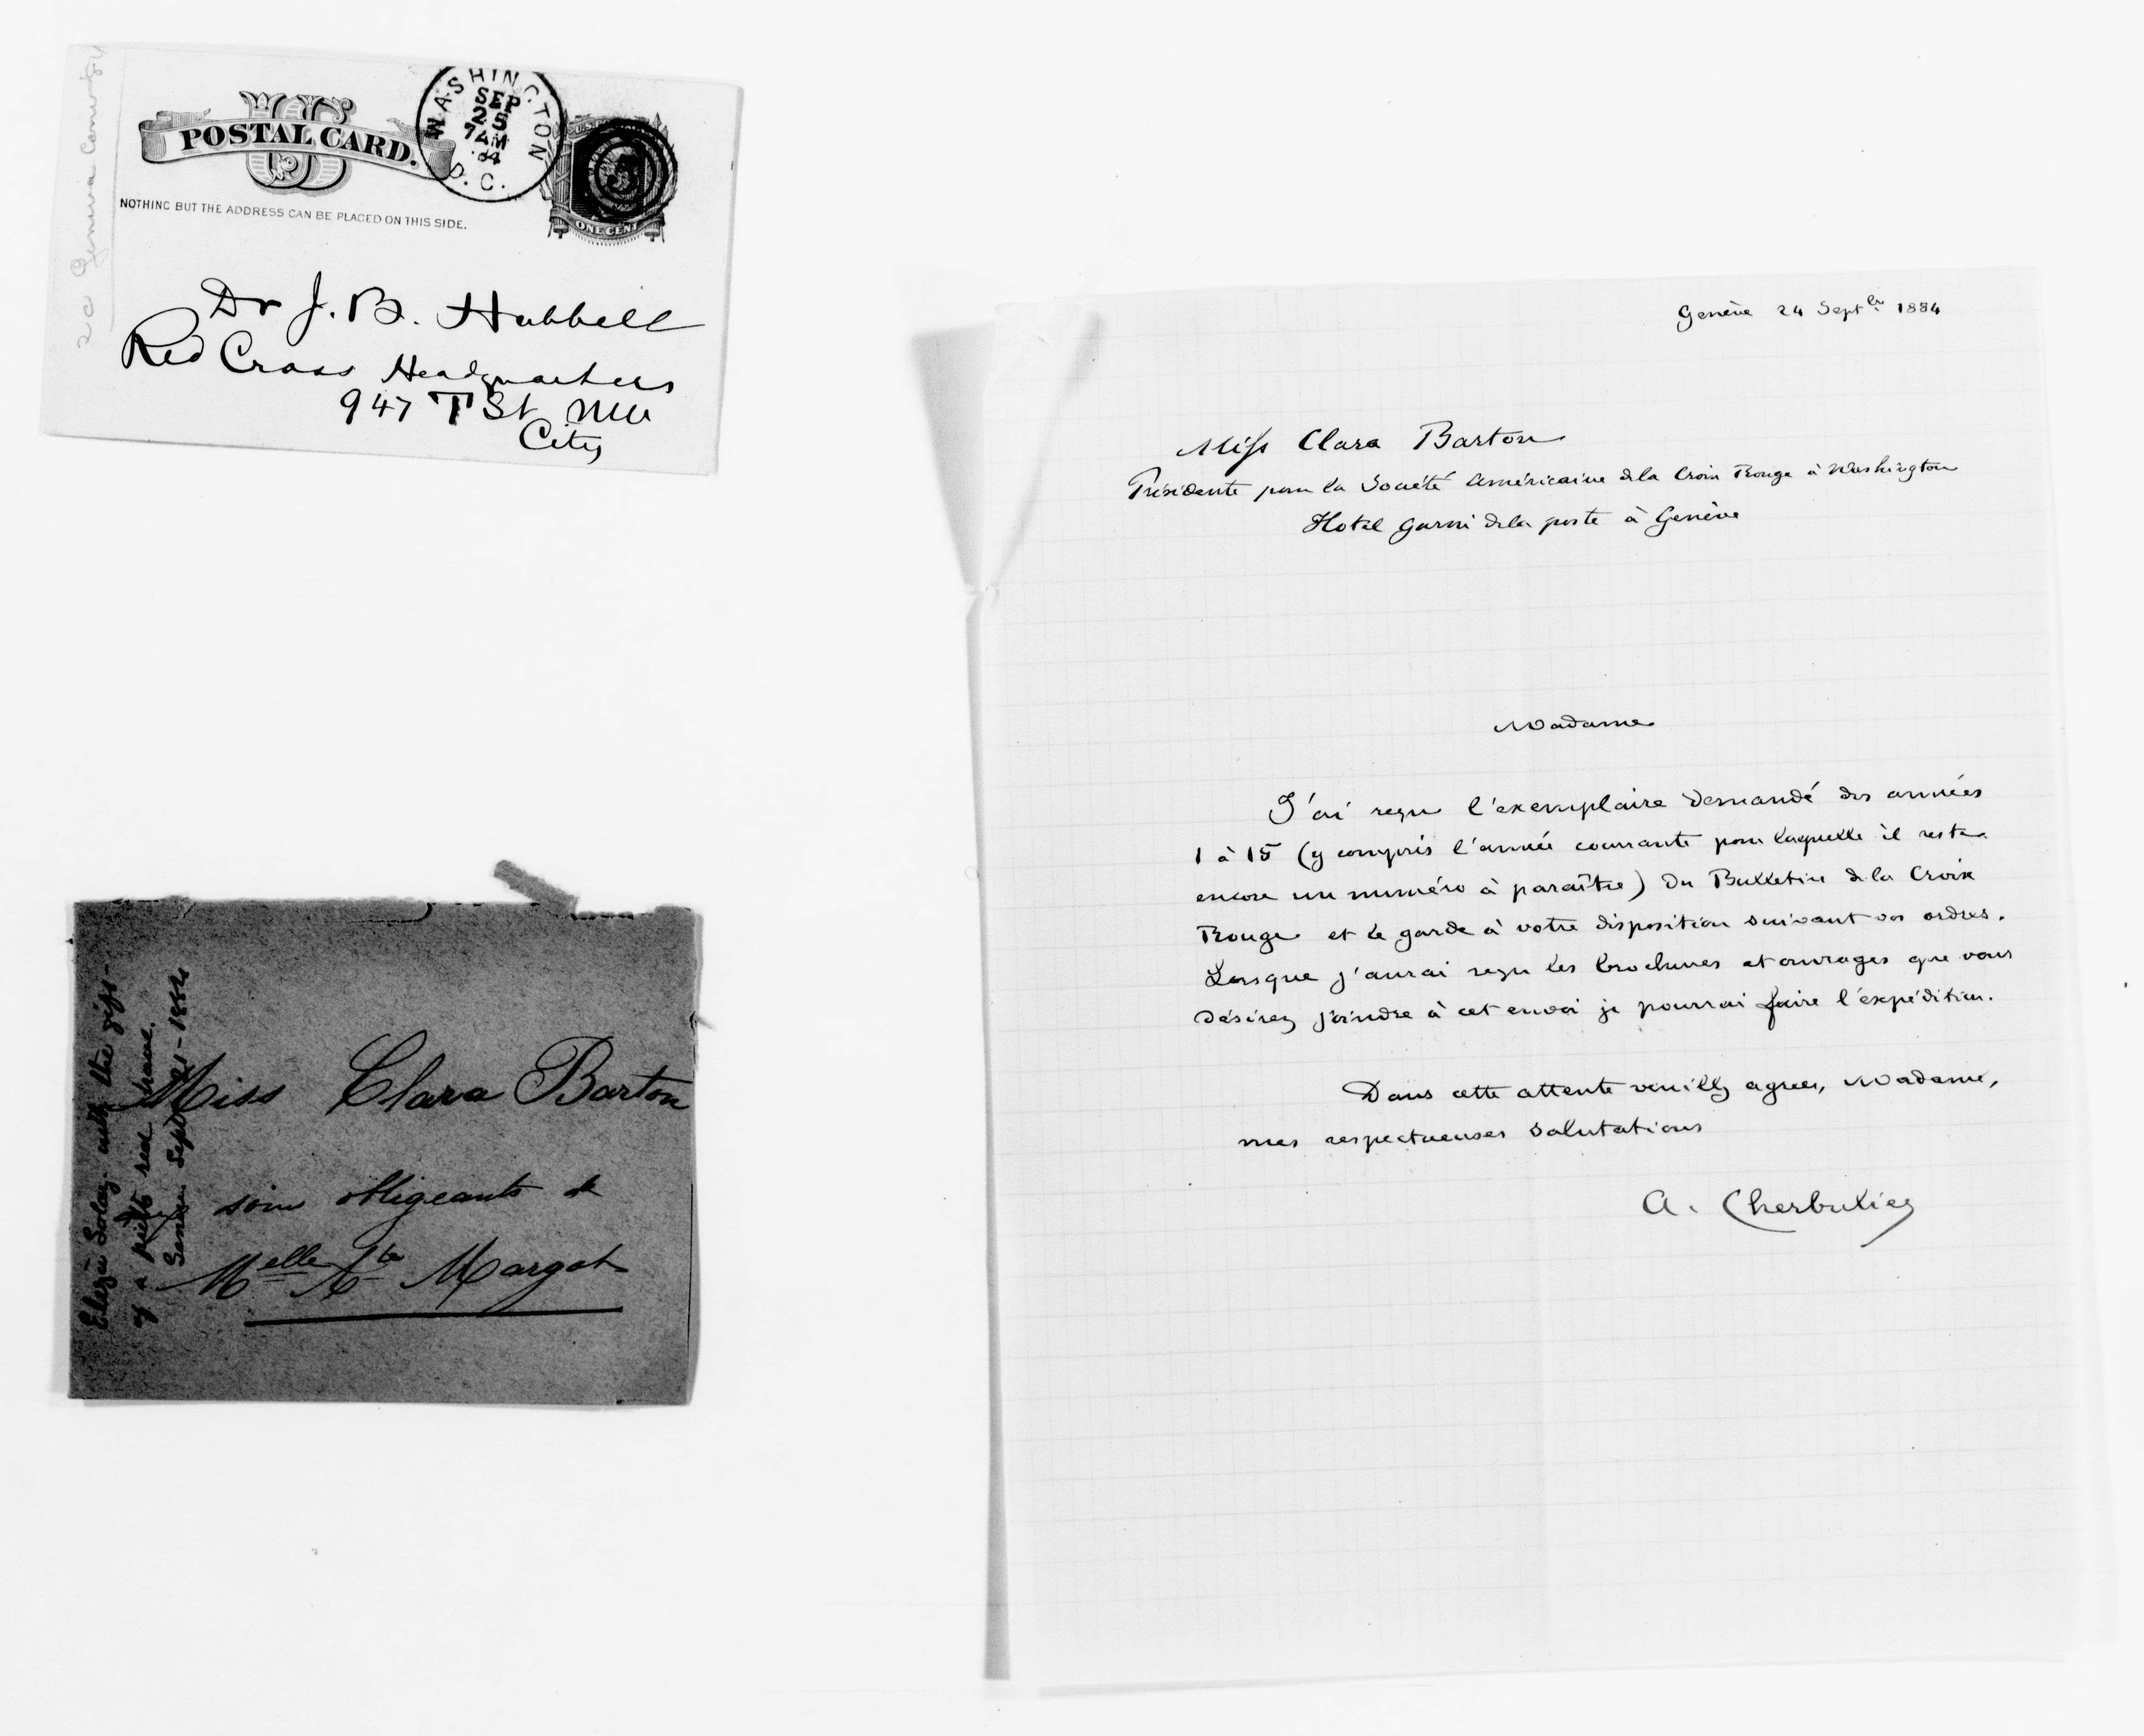 POSTAL CARD.
WASHINGTON
SEP
25
7 AM
'84
D.C.
ONE CENT
NOTHING BUT THE ADDRESS CAN BE PLACED ON THIS SIDE.
Dr J. B. Hubbell
Red Cross Headquarters
947 T St NW
City
2c Geneva
Miss Clara Barton
soins obligeants de
Melle Margot
with the gift-
of a red
Geneva Sept 21-1884
Genève 24 Septbr 1884
Miss Clara Barton
Présidente pour la Société Américaine de la Croix Rouge à Washington
Hotel garni de la poste à Genève
Madame
J'ai reçu l'exemplaire demandé des années
1 à 15 (y compris l'année courante pour laquelle il reste
encore un numéro à paraître) du Bulletin de la Croix
Rouge et le garde à votre disposition suivant vos ordres.
Lorsque j'aurai reçu les brochures et ouvrages que vous
désirez joindre à cet envoi je pourrai faire l'expédition.
Dans cette attente veuillez agréer, Madame,
mes respectueuses salutations
A. Cherbuliez